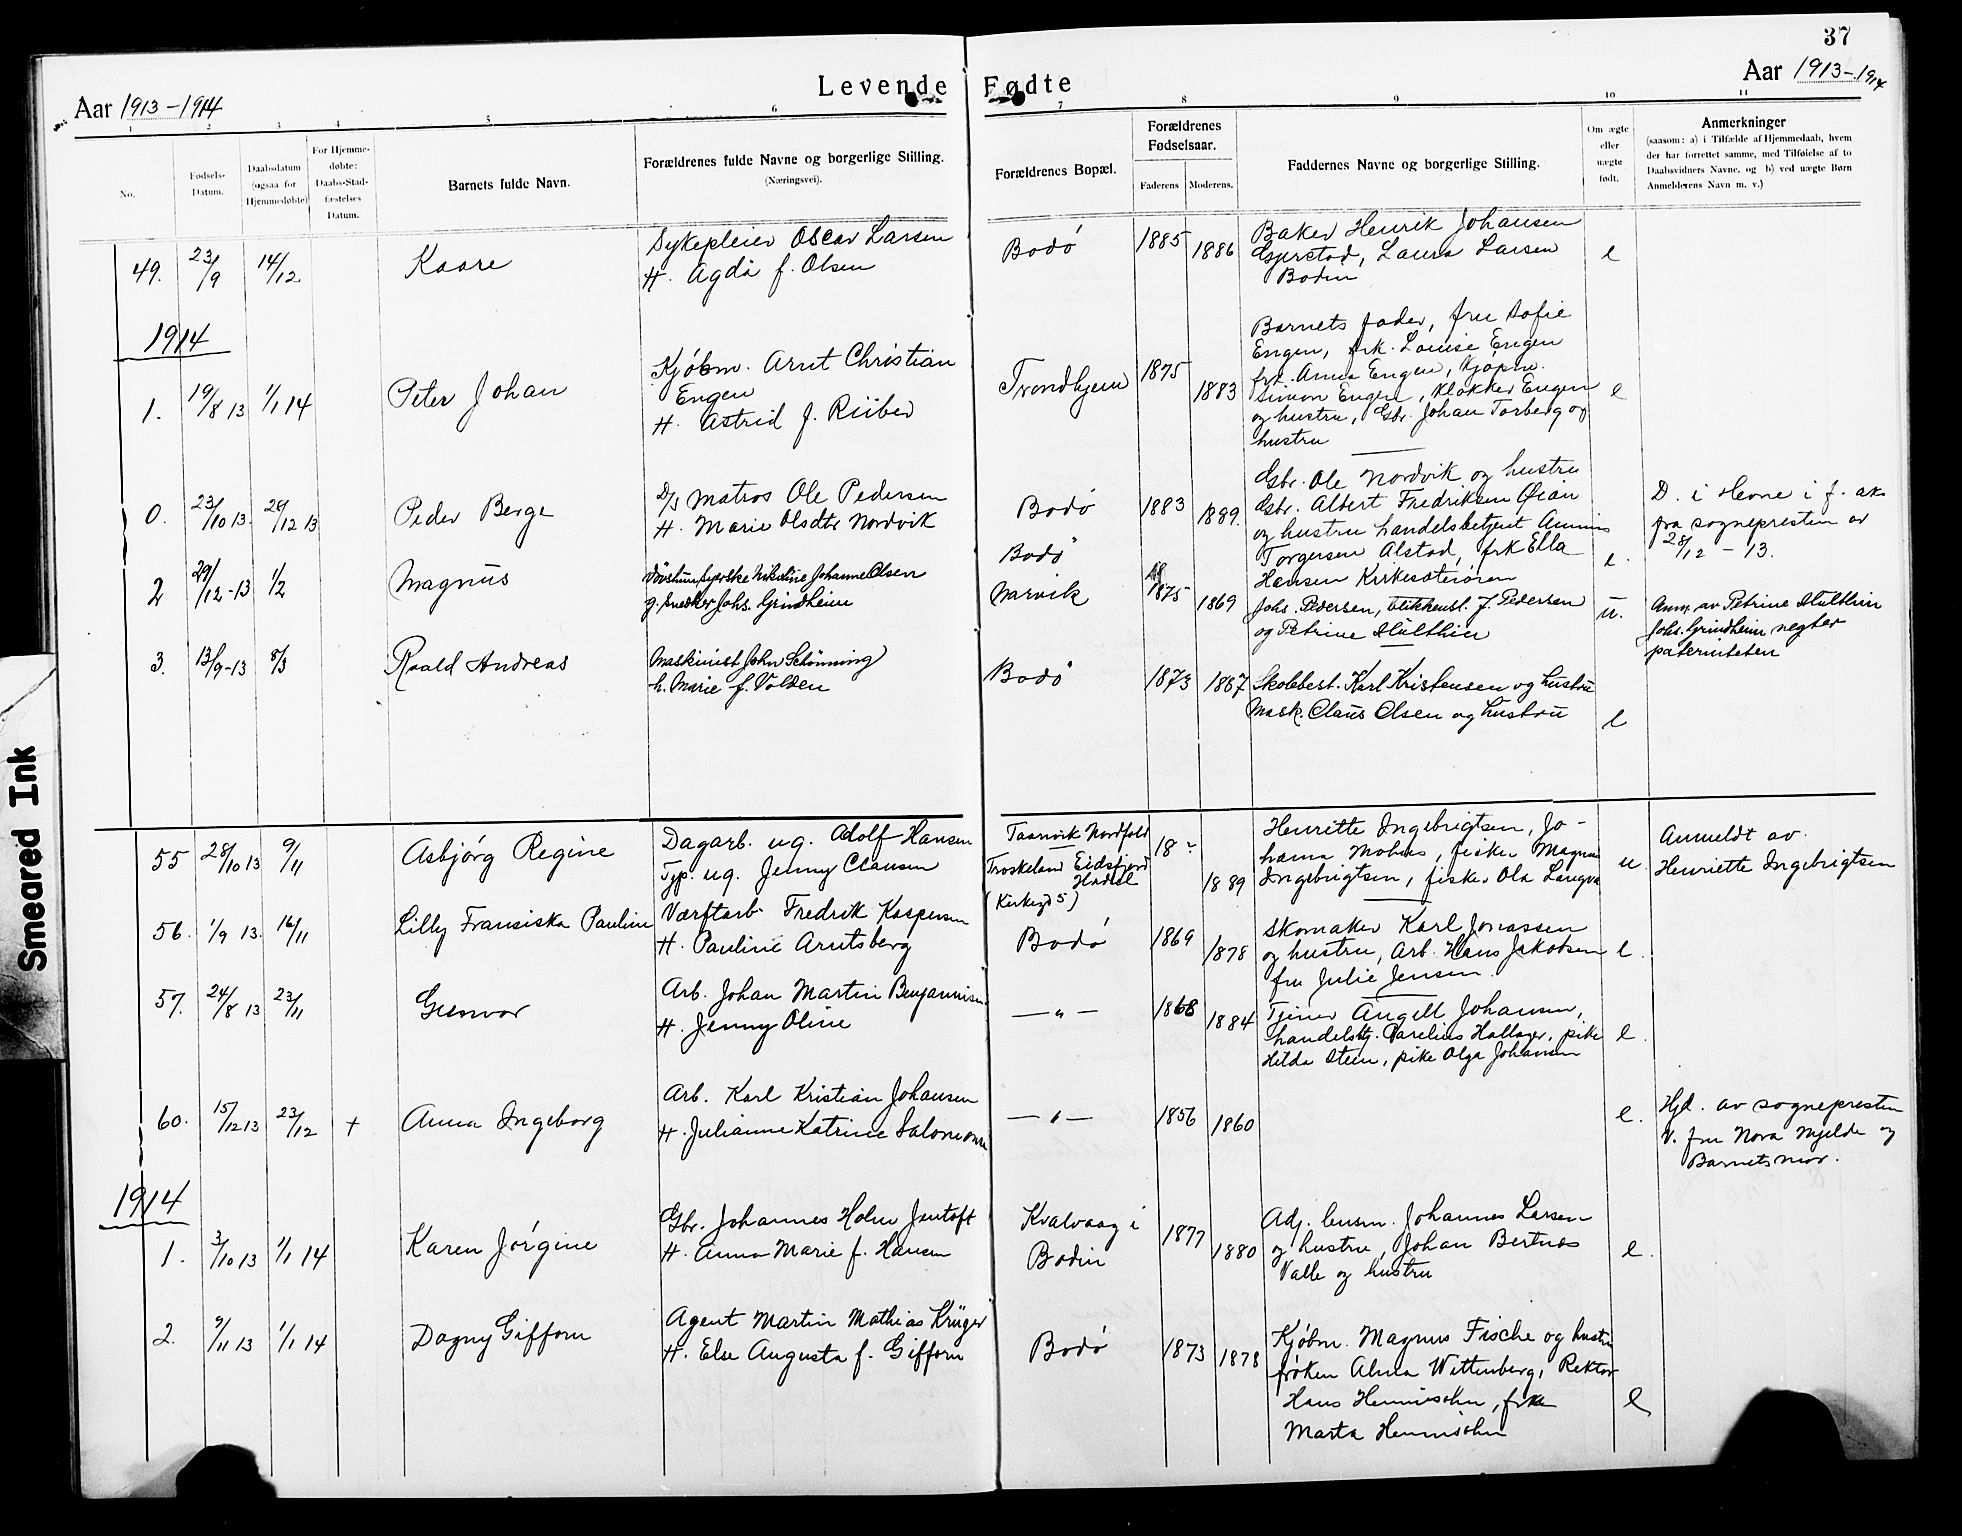 37
Levende Fødte
Aar 1913-1914
Aar 1913-1914
1 2 3 4 5 6 7 8 9 10 11
No.
Fødsels-
Datum.
Daabsdatum
(ogsaa for
Hjemmedøbte)
For Hjemme-
døbte:
Daabs-Stad-
fæstelses
Datum.
Barnets fulde Navn.
Forældrenes fulde Navne og borgerlige Stilling.
(Næringsvei).
Forældrenes Bopæl.
Forældrenes
Fødselsaar.
Faderens Moderens.
Faddernes Navne og borgerlige Stilling.
Om ægte
eller
uægte
født.
Anmerkninger
(saasom: a) i Tilfælde af Hjemmedaab, hvem
der har forrettet samme, med Tilføielse af to
Daabsvidners Navne, og b) ved uægte Børn
Anmelderens Navn m. v.)
49. 23/9 14/12 Kaare
Sykepleier Oscar Larsen
H. Agda f. Olsen
Bodø 1885 1886
Baker Henrik Johansen
Gjerstad, Laura Larsen
Bodin
e
1914
1. 19/8 13 1/1 14 Peter Johan
Kjøbm. Arnt Christian
Engen
H. Astrid f. Riiber
Trondhjem 1875 1883
Barnets fader, fru Sofie
Engen, frk. Louise Engen
frk. Anna Engen, Kjøpm.
Simon Engen, Klokker Engen
og hustru, Gbr. Johan Torberg og
hustru
e
0. 23/10 13. 29/12 13 Peder Berge
D/S Matros Ole Pedersen
H. Marie Olsdtr Nordvik
Bodø 1883 1889.
Bodø
Gbr. Ole Nordvik og hustru
Gbr. Albert Fredriksen Øian
og hustru handelsbetjent
Torgersen Alstad, frk Ella
Hansen
e.
D. i Hevne i f. ak
fra sognepresten av
28/12 - 13.
2 29/12-13 1/2 Magnus
Nikoline Johanne Olsen
g. snedker Johs. Grindheim
Narvik 1875 1869
Johs. Pedersen, blikkensl. J. Pedersen
og Petrine Hulthin
u.
Anm. av Petrine Hulthin
Johs. Grindheim negter
paterniteten
3. 13/9-13 8/3 Roald Andreas
Maskinist John Schønning
h. Marie f. Volden
Bodø 1873 1867
Skobest. Karl Kristensen og hustru
Mask. Claus Olsen og hustru
e
55 28/10 13 9/11 Asbjørg Regine
Dagarb. ug. Adolf Hansen
Tjp. ug. Jenny Clausen
Nordfold
Eidsfjord
Hadsel
(Kirkegd 5)
18 - 1889
Henritte Ingebrigtsen, Jo-
hanna, fisker Magnus
Ingebrigtsen, fisker Ola
u.
Anmeldt av
Henriette Ingebrigtsen
56. 1/9 13. 16/11 Lilly Fransiska Pauline
Værftarb. Fredrik Kaspersen
H. Pauline Arntsberg
Bodø 1869 1878
Skomaker Karl Jonassen
og hustru, Arb. Hans Jakobsen
fru Julie Jensen
e.
57. 24/8 13 23/11 Gunvor
Arb. Johan Martin Benjaminsen
H. Jenny Oline
— " — 1868 1884
Tjener Angell Johansen,
handelsbtj. Parelius, pike
Hilda Steen, pike Olga Johansen
e.
60. 15/12 13 23/12 + Anna Ingeborg
Arb. Karl Kristian Johansen
H. Julianne Katrine
— " — 1856 1860
e.
Hjd. av sognepresten
V. fru Nora Mjelde og
Barnets mor.
1914
1. 3/10 13 1/1 14 Karen Jørgine
Gbr. Johannes Holm Jentoft
H. Anna Marie f. Hansen
Kvalvaag i
Bodin
1877 1880
Adj. Johannes Larsen
og hustru, Johan Bertnes
Valle og hustru
e.
2. 9/11 13 1/1 14 Dagny Gifform
Agent Martin Mathias Krüger
H. Else Augusta f. Gifform
Bodø 1873 1878
Kjøbm. Magnus Fische og hustru
frøken Alma Wittenberg, Rektor
Hans Hennischn, frk
Marta Hennischn
e
Smeared Ink